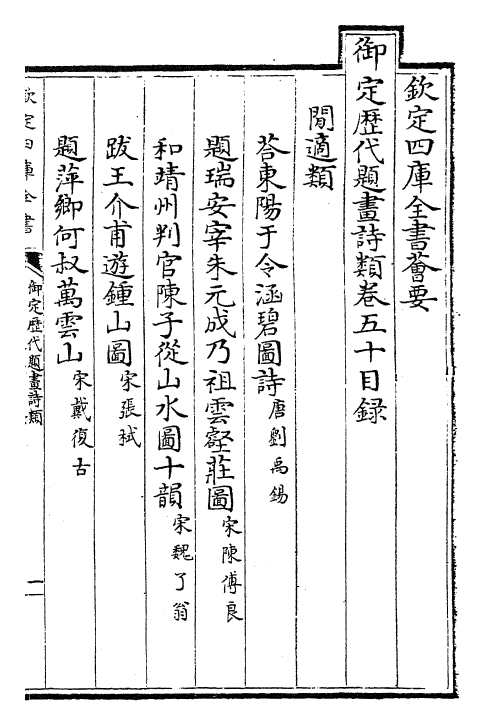 欽定四庫全書薈要
御定歷代題畫詩類卷五十目録
閒適類
荅東陽于令涵碧圖詩唐劉禹錫
題瑞安宰朱元成乃祖雲壑莊圖宋陳傅良
和靖州判官陳子從山水圖十韻宋魏了翁
跋王介甫遊鍾山圖宋張栻
題萍鄉何叔萬雲山宋戴復古
欽定四庫全書
御定歷代題畫詩類
一